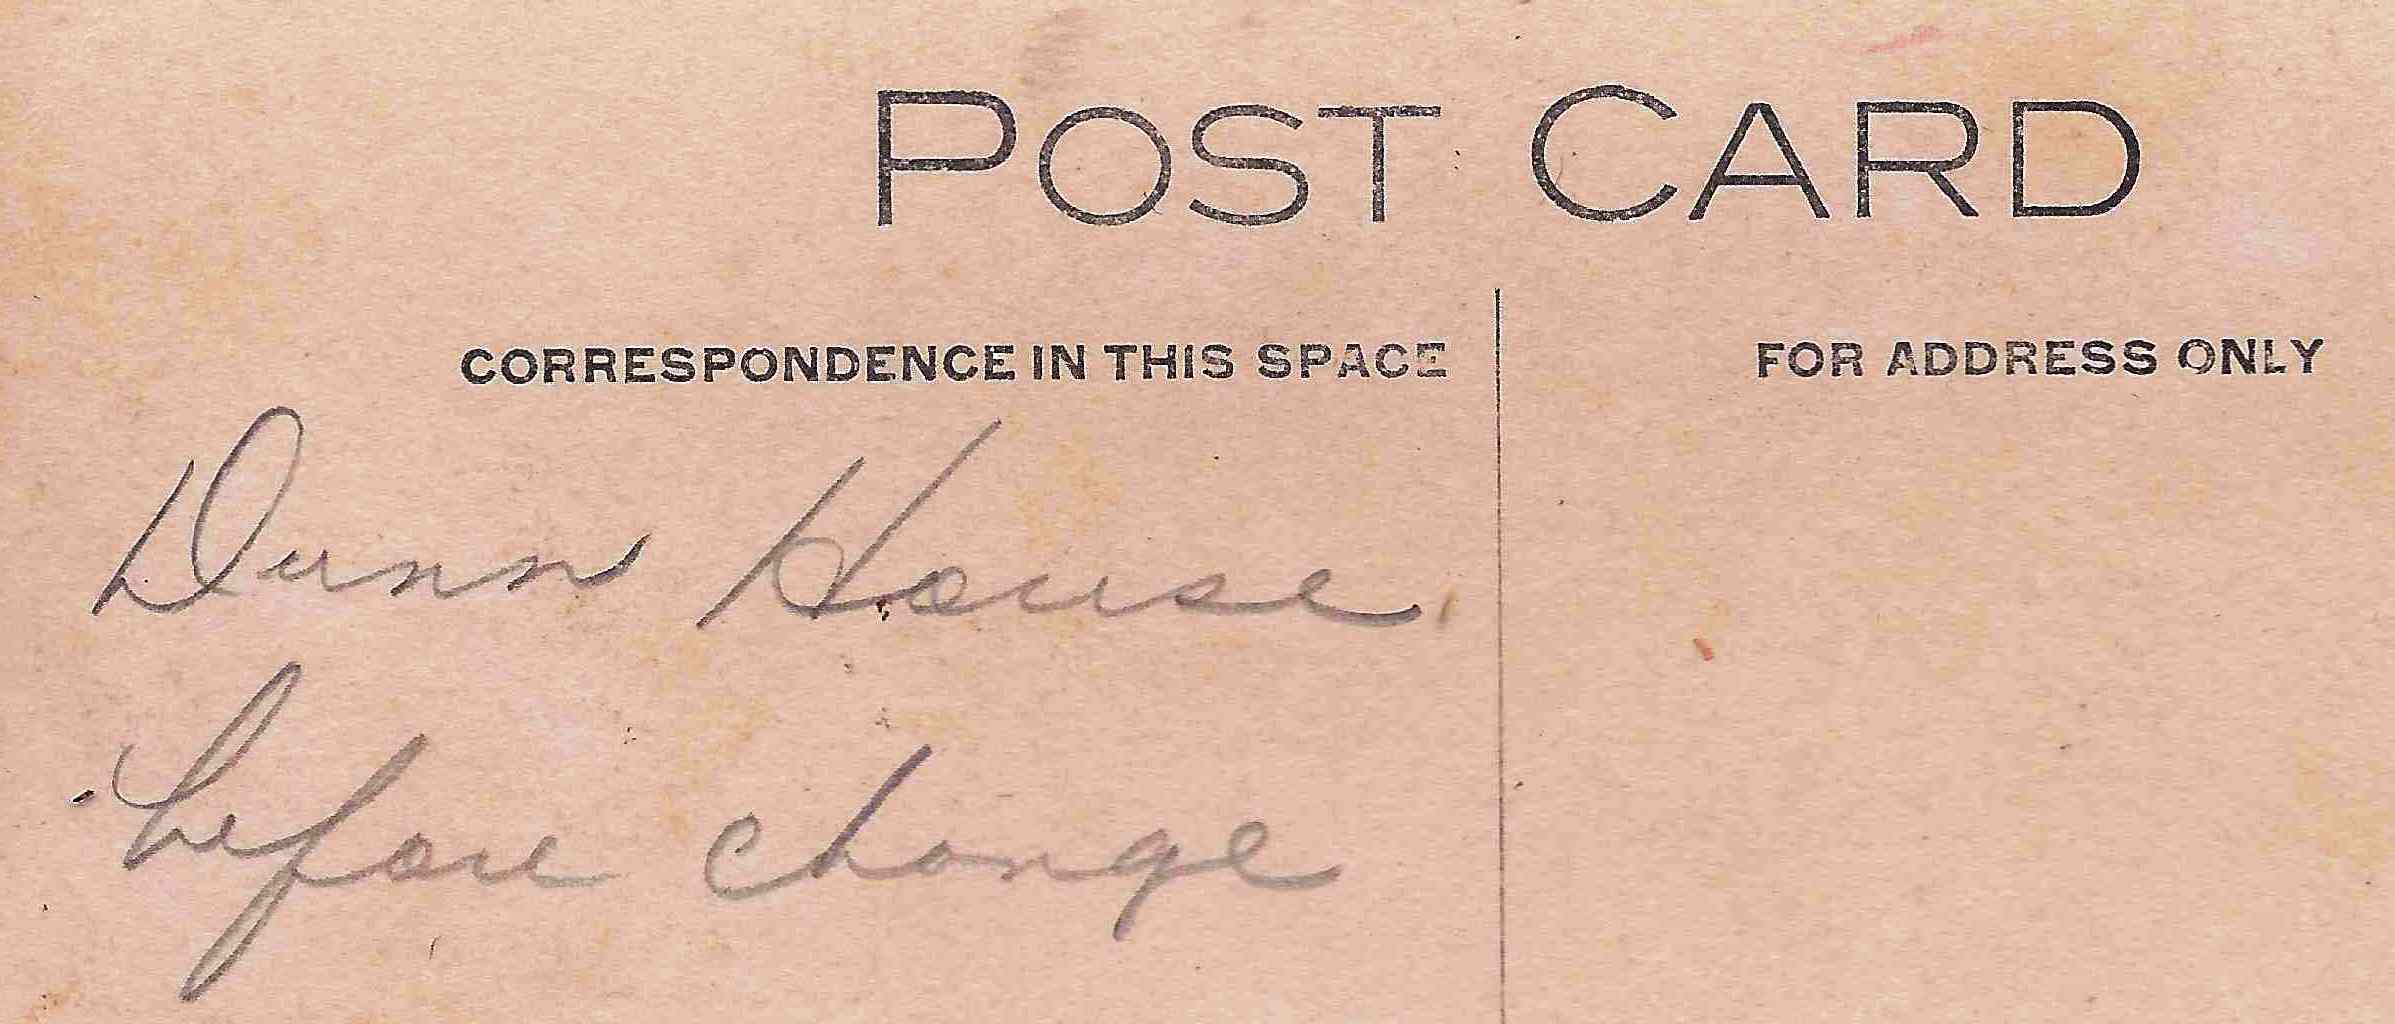 POST CARD
CORRESPONDENCE IN THIS SPACE
FOR ADDRESS ONLY
Dunn House
before change